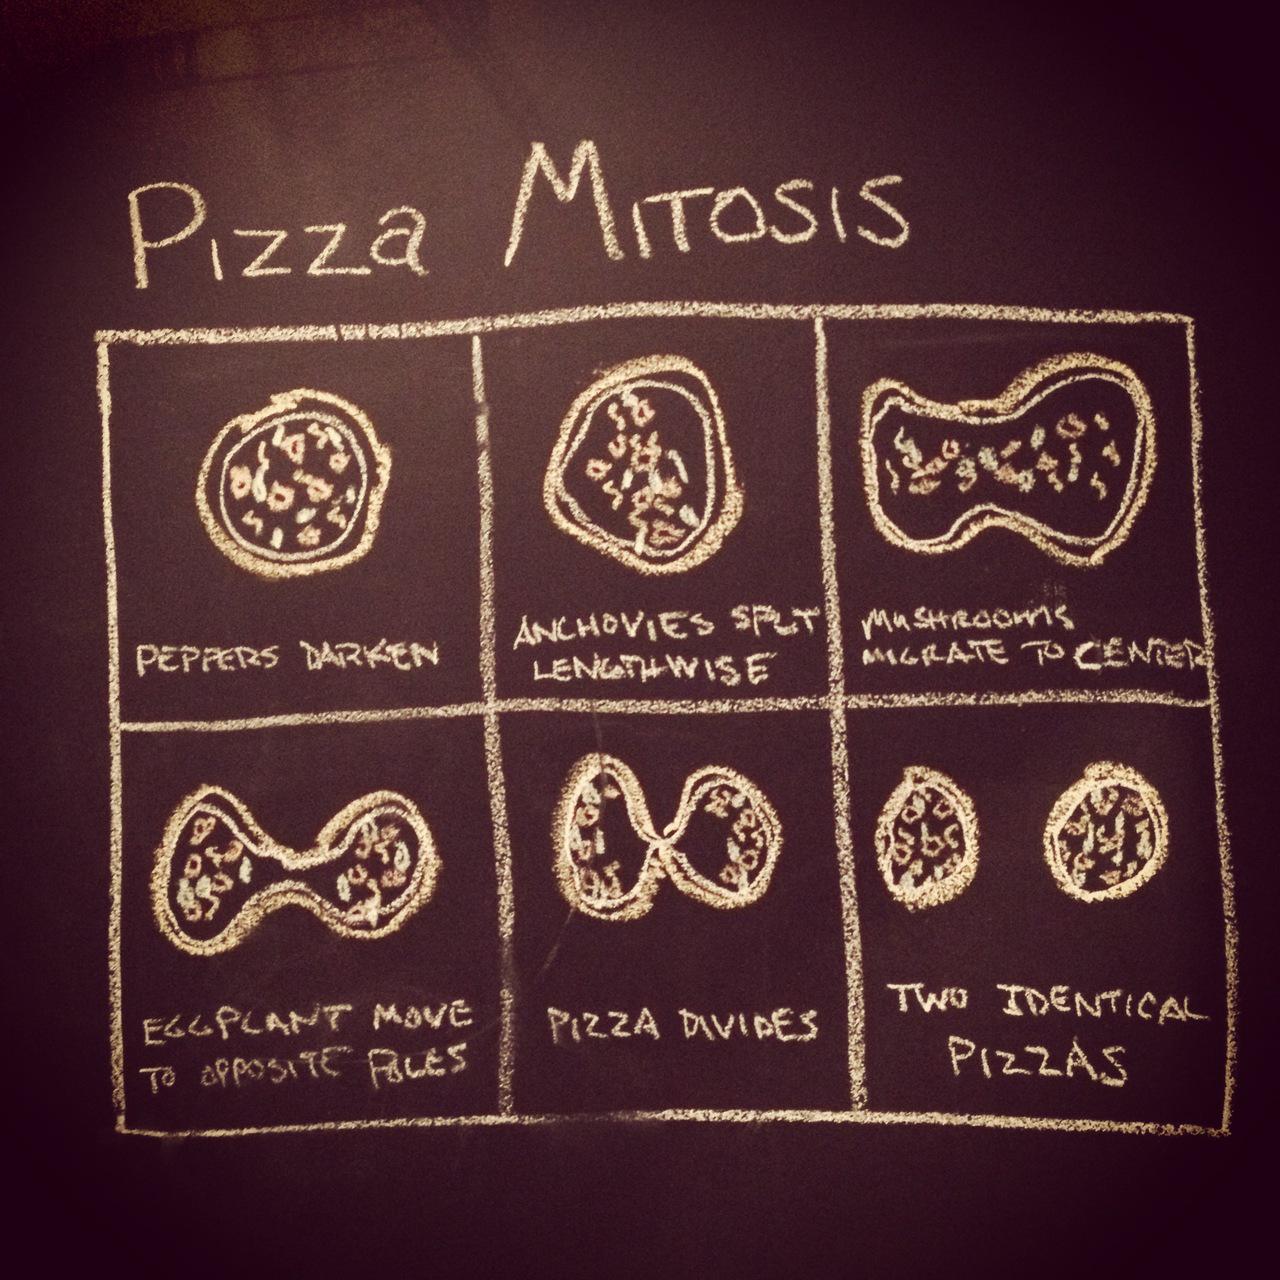 Pizza Mitosis
PEPPERS DARKEN
ANCHOVIES SPLIT
LENGTHWISE
MUSHROOMS
MIGRATE TO CENTER
EGGPLANT MOVE
TO OPPOSITE POLES
PIZZA DIVIDES
TWO IDENTICAL
PIZZAS